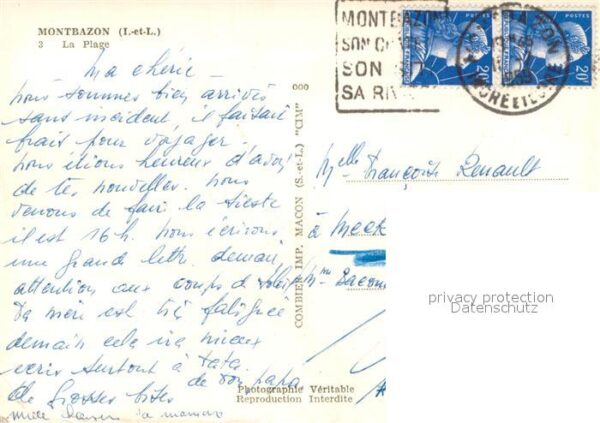 MONTBAZON (I.-et-L.)
3 La Plage
Ma chérie -
nous sommes bien arrivés
sans incident il faisait
frais pour voyager.
nous étions heureux d'avoir
de tes nouvelles. nous
venons de faire la sieste
il est 16h. nous écrirons
une grande lettre demain
attention aux coups de soleil
ta mère est très fatiguée
demain cela ira mieux
écris surtout à tata.
de grosses bises de ton papa
Mille
ta maman
COMBIER IMP. MACON (S.-et-L.) "CIM"
000
Photographie Véritable
Reproduction Interdite
MONTBAZON
SON
SON
SA
MONTBAZON
INDRE ET LOIRE
POSTES
20F
POSTES
20F
Melle Françoise Renault
à
Mme
privacy protection
Datenschutz